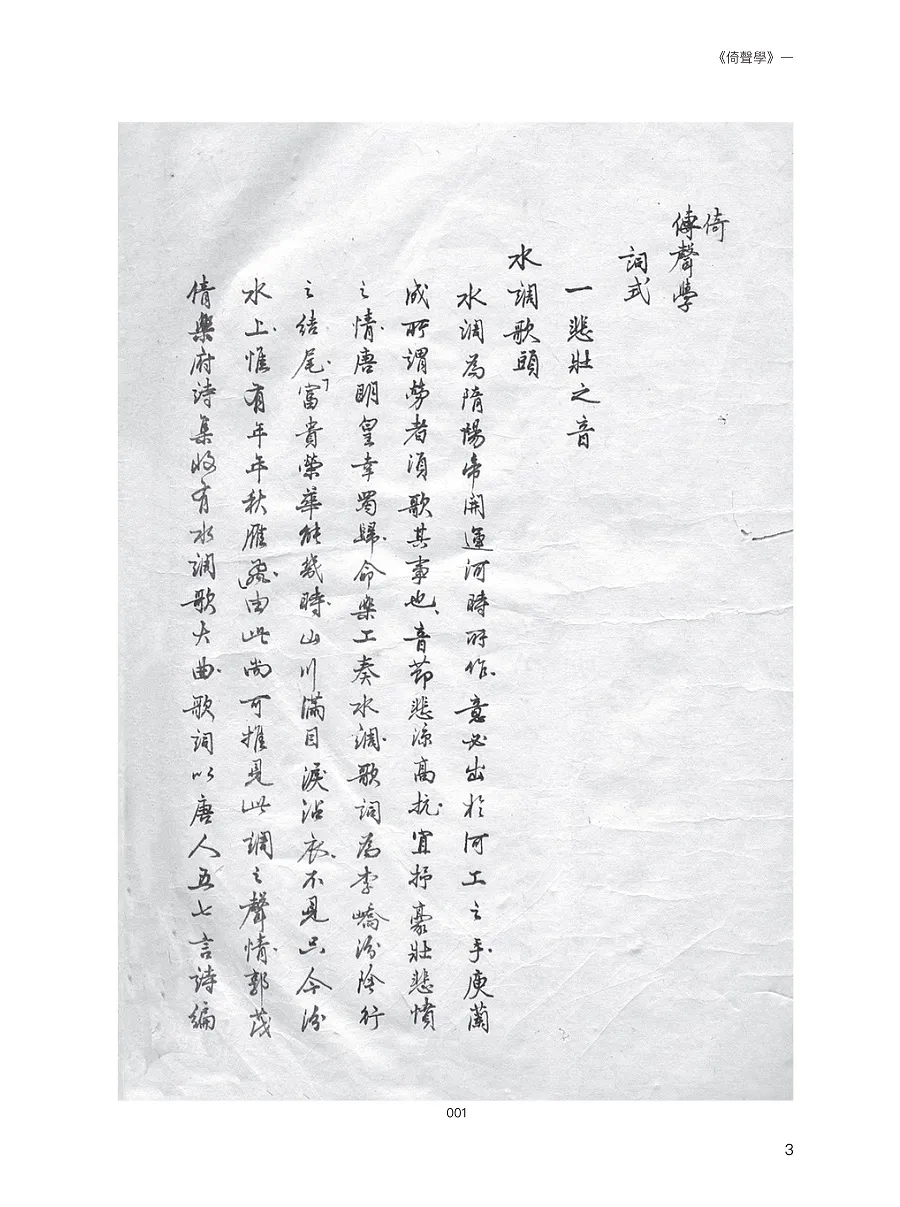 《倚聲學》一
倚
傳聲學
詞式
一 悲壯之音
水調歌頭
水調為隋煬帝開運河時所作.意必出於河工之手.庾蘭
成所謂勞者須歌其事也、音節悲涼高抗.宜抒豪壯悲憤
之情.唐明皇幸蜀歸.命樂工奏水調.歌詞為李嶠汾陰行
之結尾.「富貴榮華能幾時.山川滿目淚沾衣.不見只今汾
水上.惟有年年秋雁飛」由此尚可推見此調之聲情.郭茂
倩樂府詩集收有水調歌大曲.歌詞以唐人五七言詩編
001
3